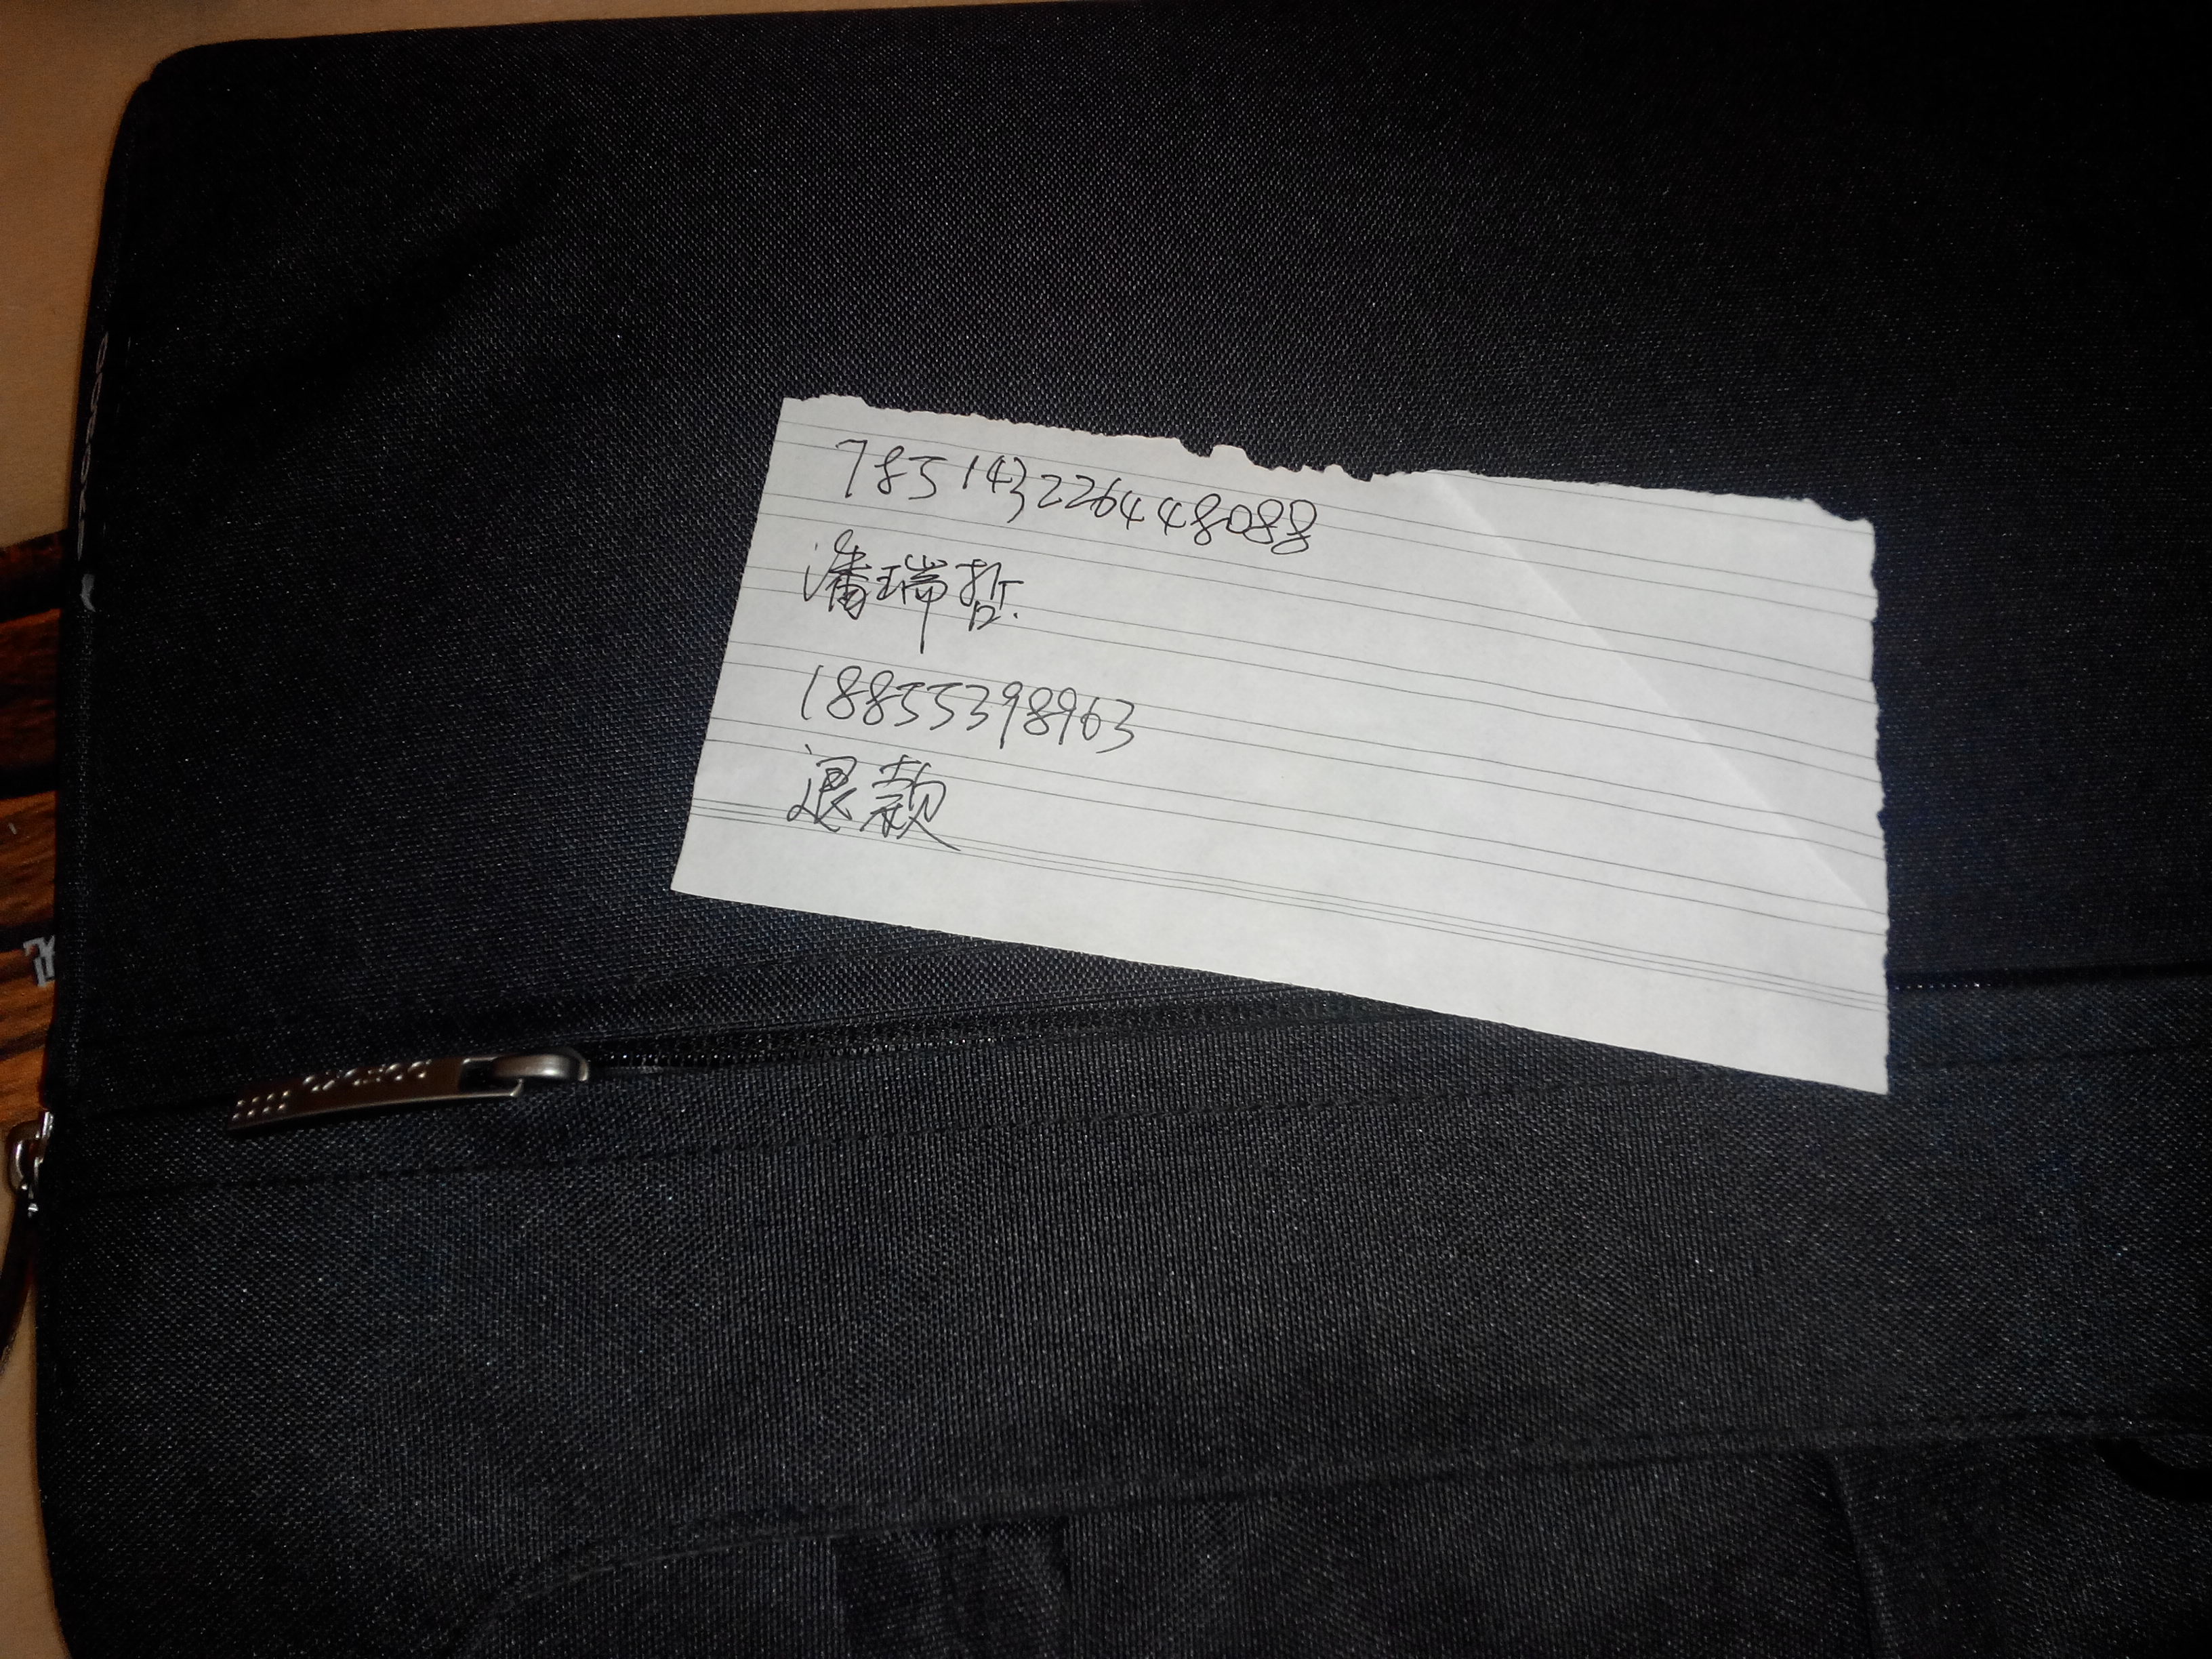 785143226448088
潘瑞哲
18855398963
退款